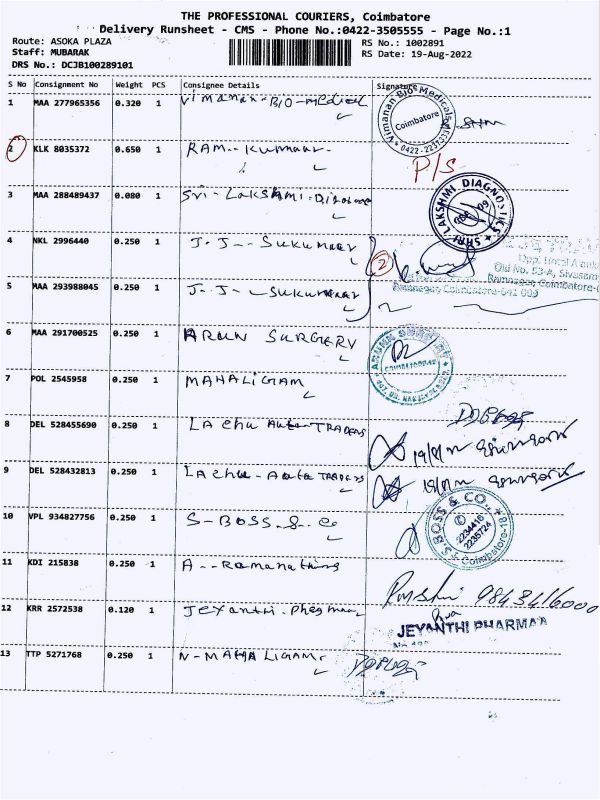 THE PROFESSIONAL COURIERS, Coimbatore
Delivery Runsheet - CMS - Phone No.:0422-3505555 - Page No.:1
Route: ASOKA PLAZA
Staff: MUBARAK
DRS No.: DCJB100289101
RS No.: 1002891
RS Date: 19-Aug-2022
S No Consignment No Weight PCS Consignee Details Signature
1 MAA 277965356 0.320 1 Vimanan-Bio-medical
Vimanan Bio Medicals Coimbatore
2 KLK 8035372 0.650 1 RAM--Kumaar- P/S
3 MAA 288489437 0.080 1 Sri-LAKSHMI-
SHRI LAKSHMI DIAGNOSTICS
4 NKL 2996440 0.250 1 J.J--SUKUMAAR
2
Old No. 53-A,
Ramnagar, Coimbatore-
Ramnagar, Coimbatore-641 009
5 MAA 293988045 0.250 1 J.J-SUKUMAAR
6 MAA 291700525 0.250 1 ARUN SURGERY
7 POL 2545958 0.250 1 MAHALIGAM
8 DEL 528455690 0.250 1 LAchu Auto TRADERS
9 DEL 528432813 0.250 1 LAchu-Auto TRADERS
10 VPL 934827756 0.250 1 S-BOSS-&-Co
S. BOSS & CO., Coimbatore-18
2234416
2235724
11 KDI 215838 0.250 1 A--Ramanathans
12 KRR 2572538 0.120 1 Jeyanthi-
JEYANTHI PHARMAA
13 TTP 5271768 0.250 1 N-MAHALIGAM-